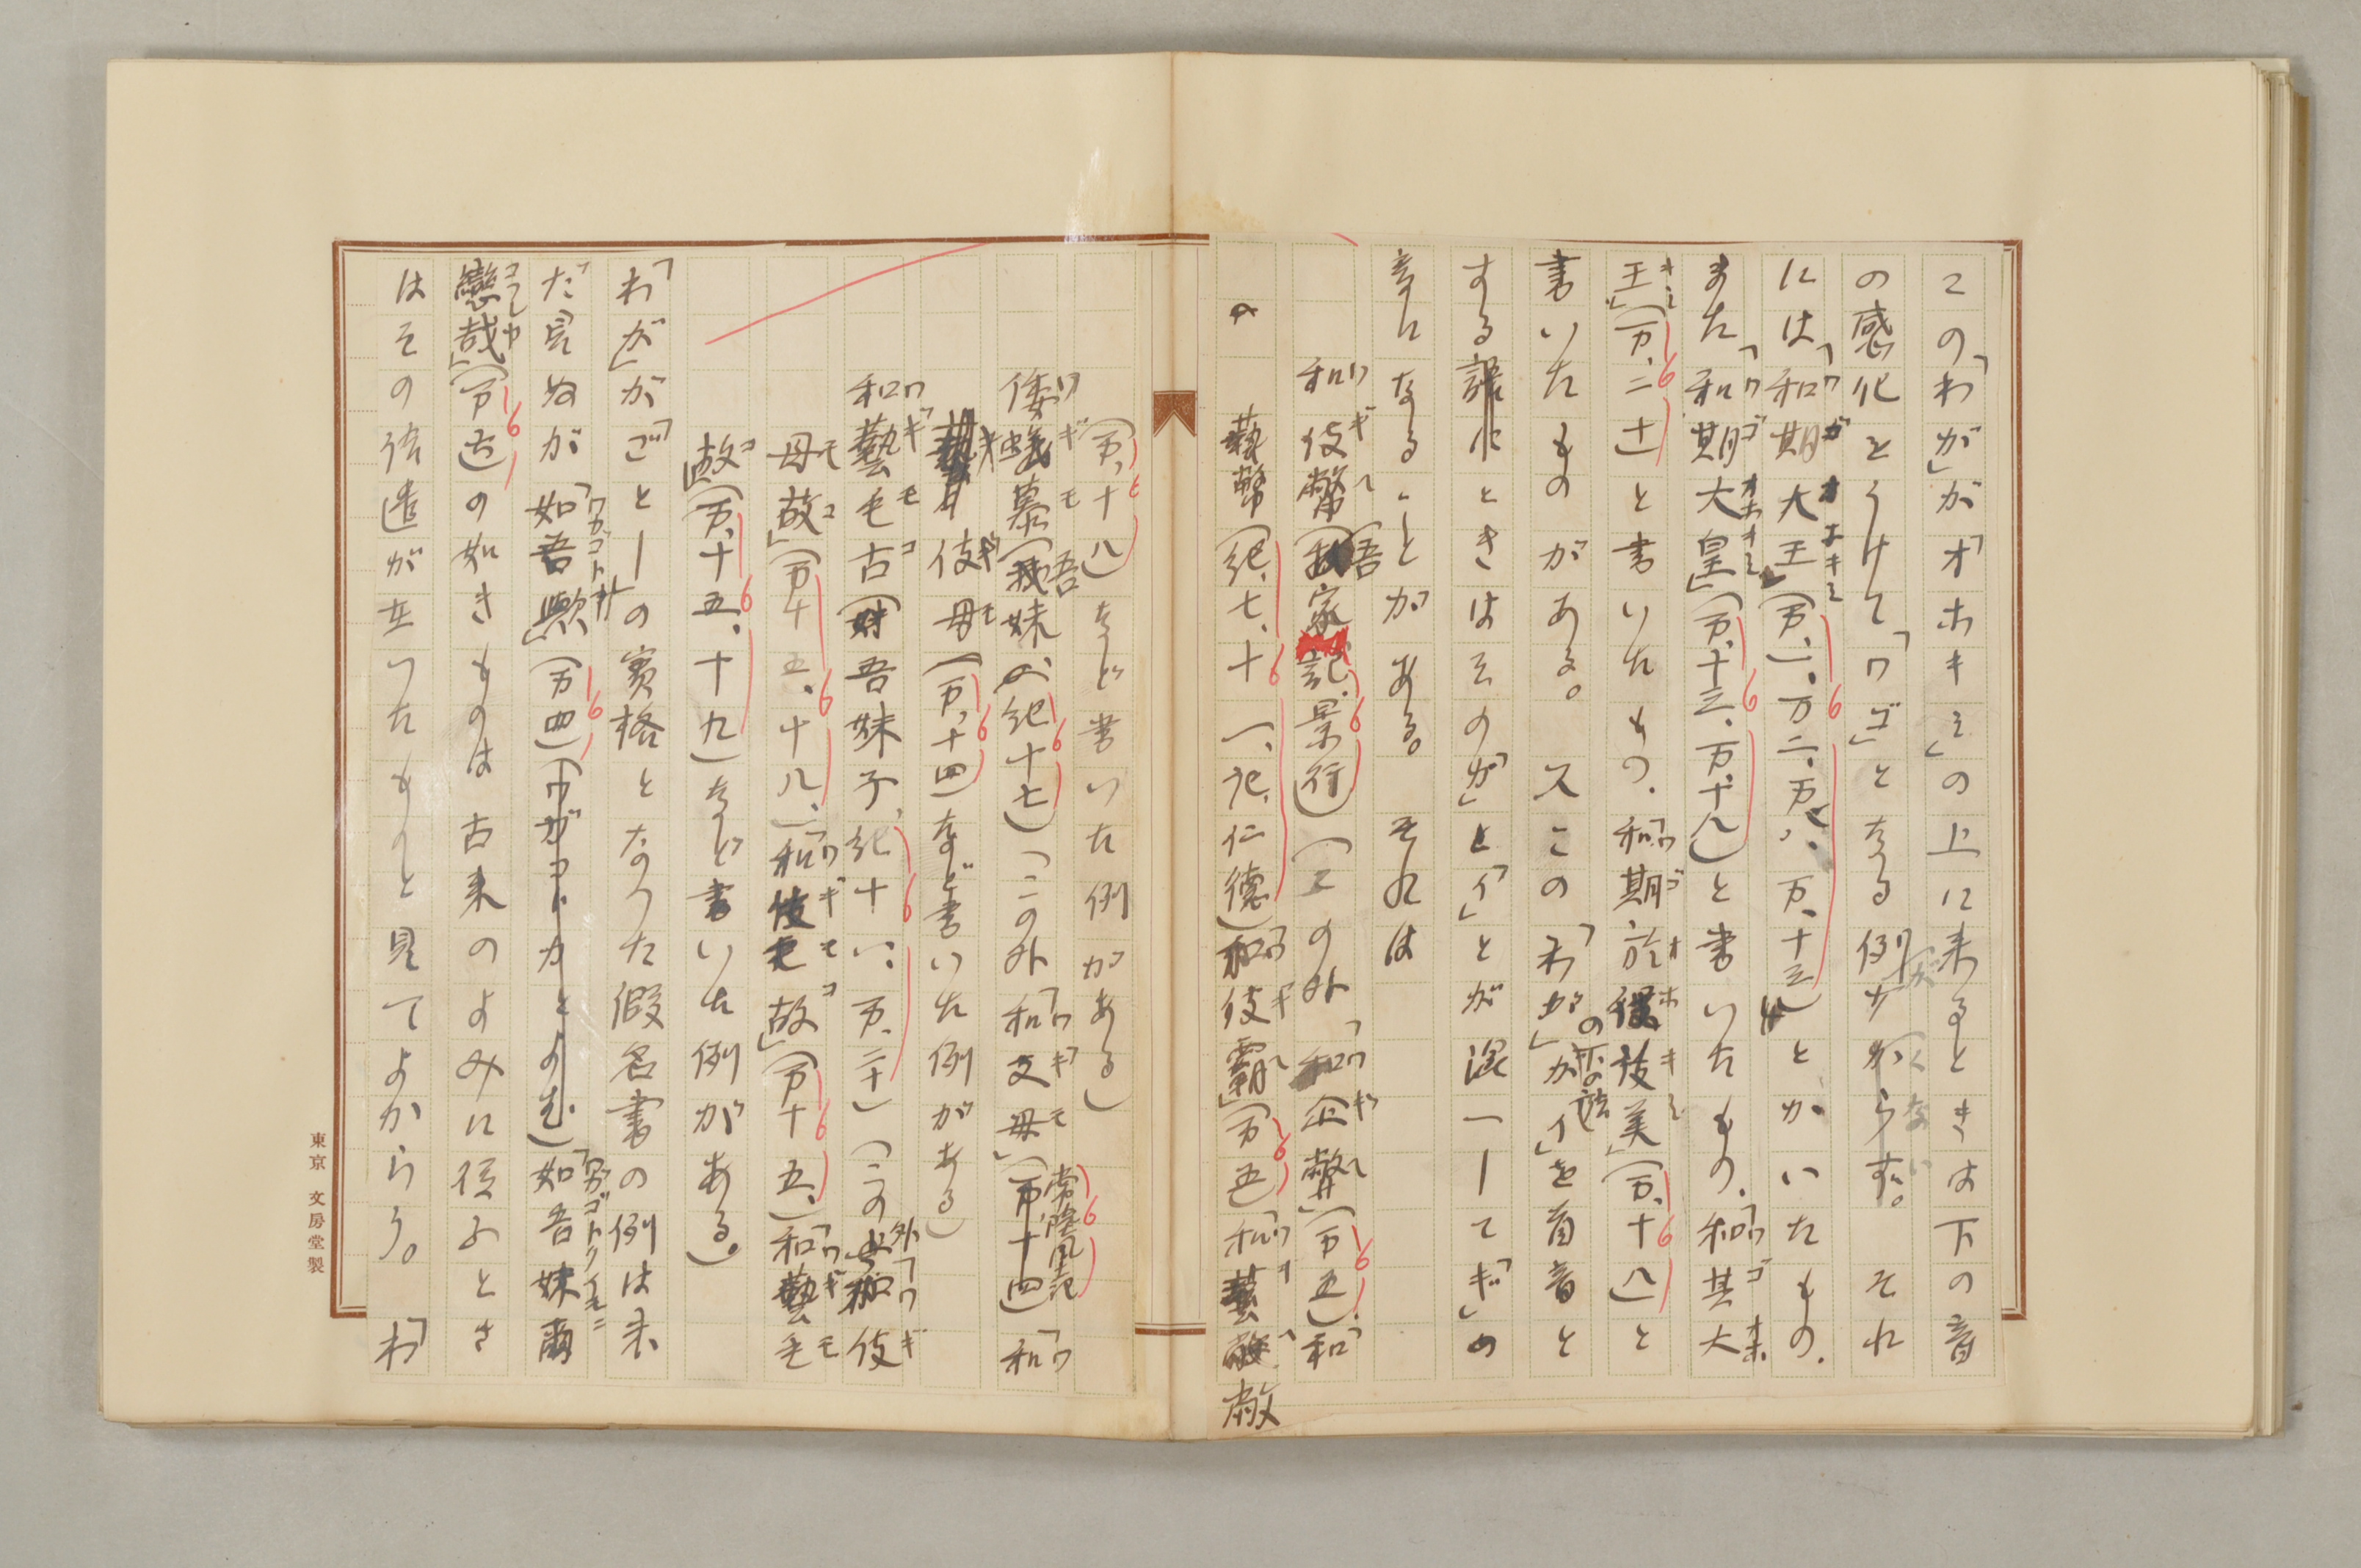 この「わが」が「オホキミ」の上に来るときは下の音
の感化をうけて「ワゴ」となる例が少くない。それ
には「和期大王」(万、一、万二、万、万、十三)とかいたもの、
また「和期大皇」(万、十三、万、十八)と書いたもの、「和其大
王」(万、二十)と書いたもの、「和期於保伎美」(万、十八)と
書いたものがある。又この「わが」が「イ」を首音と
する語のときはその「が」と「イ」とが混一して「ギ」の
音になることがある。それは
和伎幣(吾家記、景行)(この外「和企弊」(万五)、「和
藝幣(紀、七、十一、記、仁德)「和伎覇」(万五)「和藝
(万、十八)など書いた例がある)
倭蟻慕(吾妹、紀十七)(この外「和支母」(常陸風土記、万、十四)「和
伎母(万、十四)など書いた例がある)
和藝毛古(吾妹子、紀十、万、二十)(この外「和伎
母故」(万十五、十八、)「和伎毛故」(万十五、)「和藝毛
故」(万、十五、十九)など書いた例がある。)
「わが」が「ご」と一の實格となつた假名書の例は未
だ見ぬが「如吾歟」(万四)「如吾妹爾
戀哉」(万)の如きものは古来のよみに従ふとき
はその伝遣が立つたものと見てよからう。「わ
東京 文房堂製